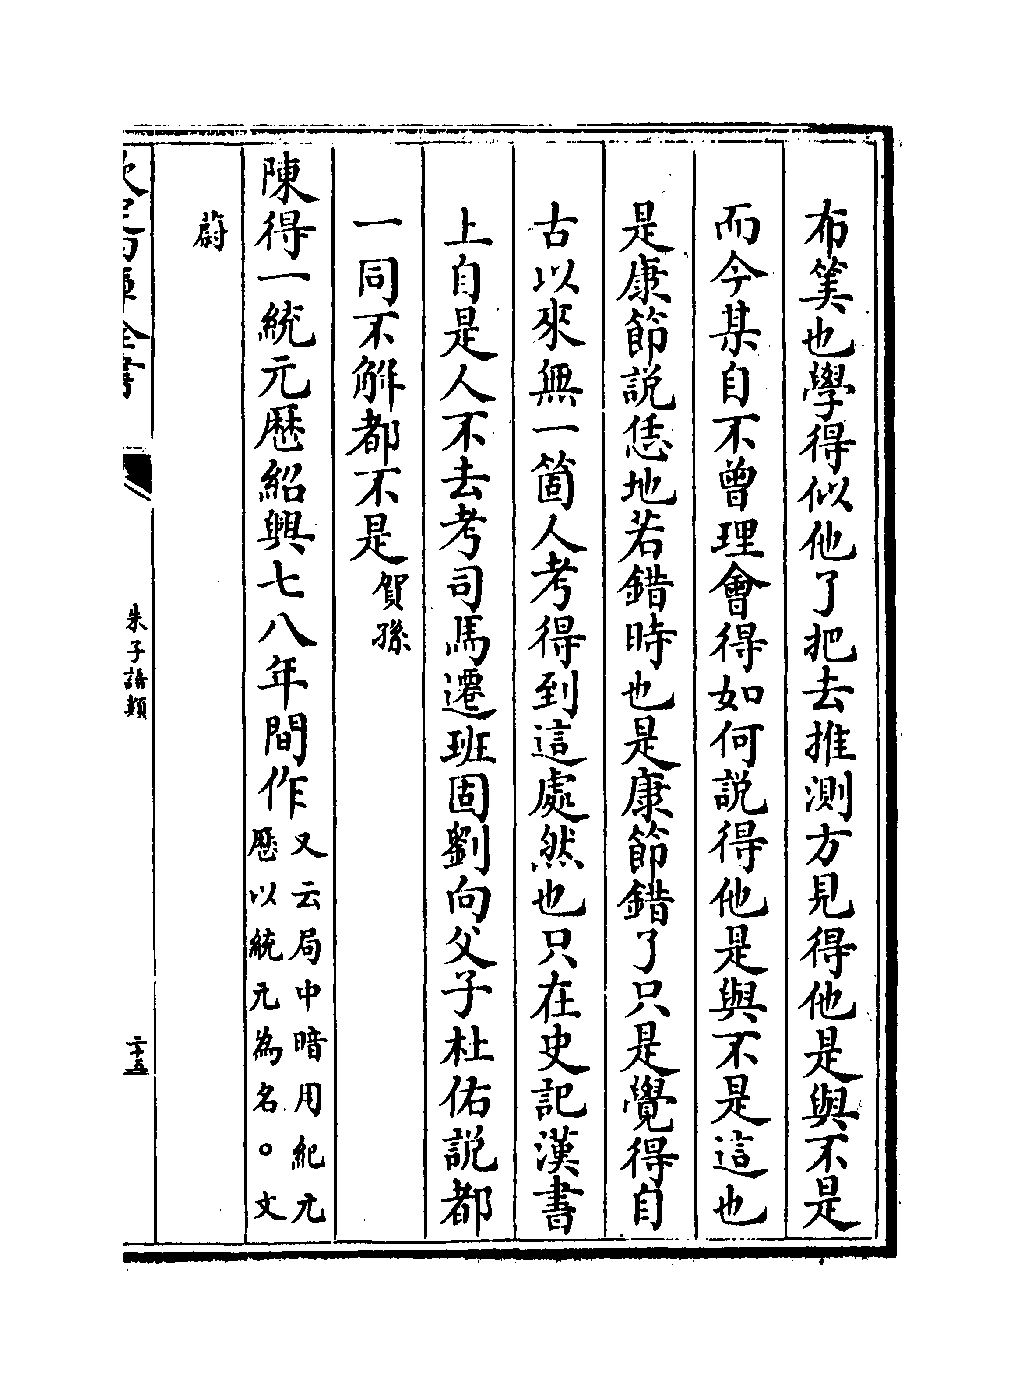 布筭也學得似他了把去推測方見得他是與不是
而今某自不曾理會得如何説得他是與不是這也
是康節説恁地若錯時也是康節錯了只是覺得自
古以來無一箇人考得到這處然也只在史記漢書
上自是人不去考司馬遷班固劉向父子杜佑説都
一同不解都不是賀孫
陳得一統元厯紹興七八年間作又云局中暗用紀元
厯以統元為名。文
蔚
欽定四庫全書
朱子語類
二十五